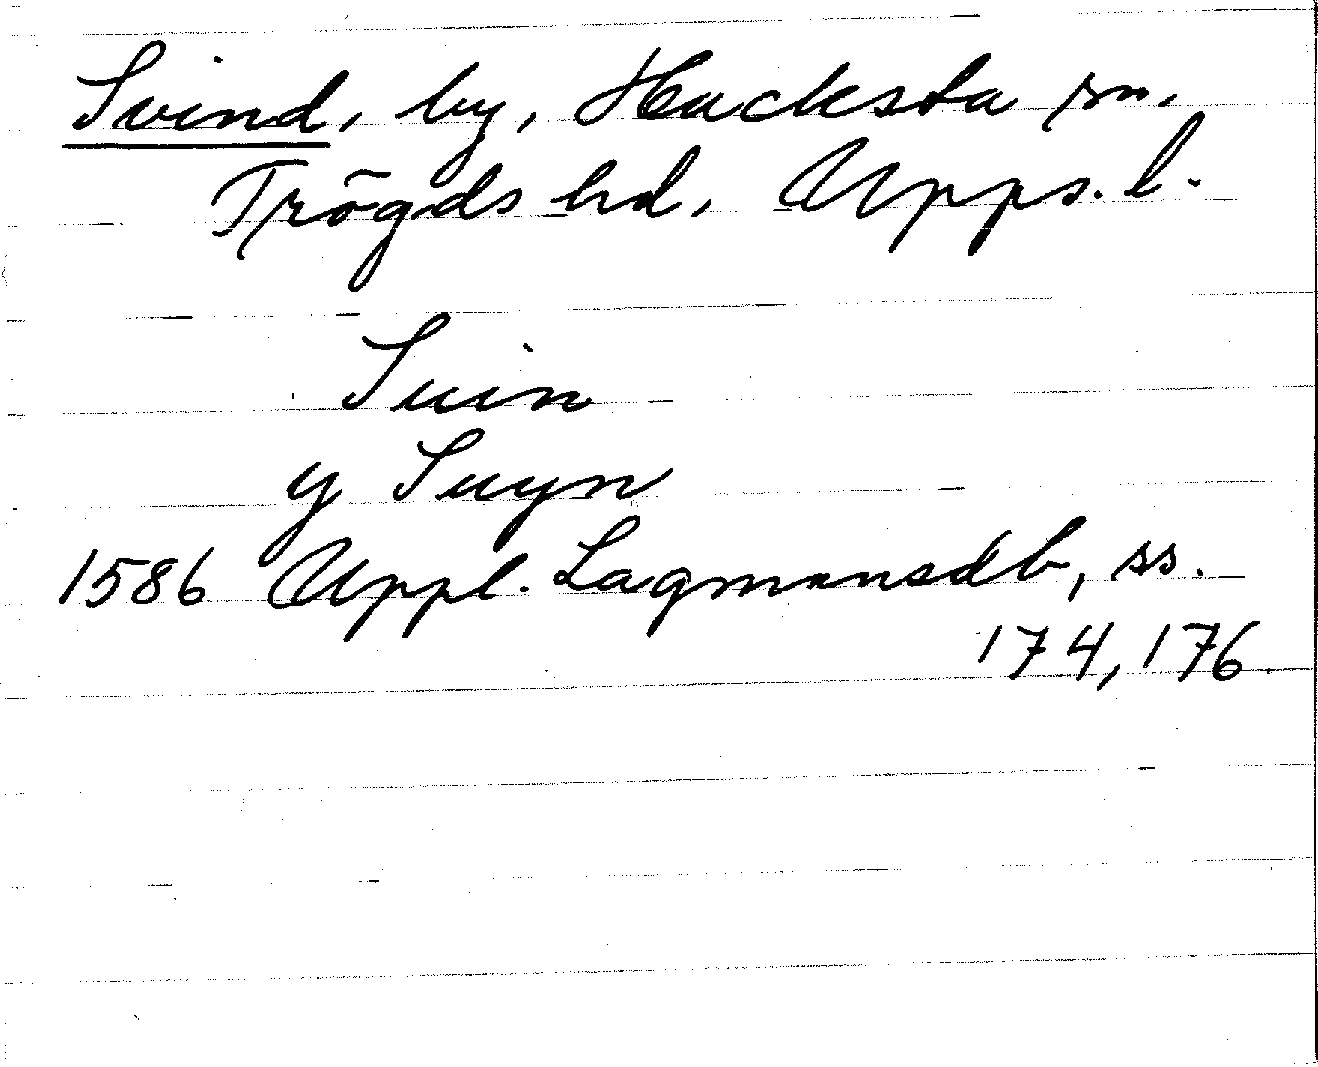 Svind, by, Hacksta sn.
Trögds hd, Upps. l.
Suin
y Suyn
1586 Uppl. Lagmansdb, ss.
174, 176